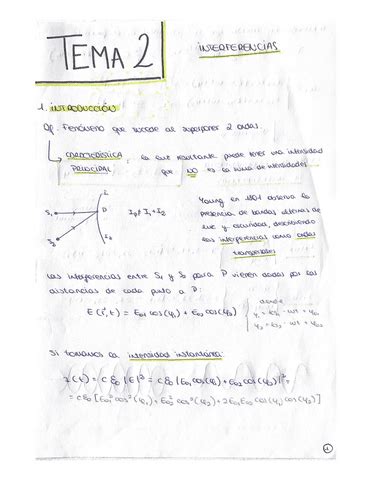 TEMA 2
INTERFERENCIAS
1. INTRODUCCIÓN
Df. Fenómeno que sucede al superponer 2 ondas.
CARACTERÍSTICA PRINCIPAL
la onda resultante puede tener una intensidad
que NO es la suma de intensidades
S₁
P
S₂
I_p ≠ I₁ + I₂
Young en 1801 observó la
presencia de bandas alternas de
luz y oscuridad, describiendo
las interferencias como ondas
transversales
Las interferencias entre S₁ y S₂ para P vienen dadas por las
distancias de cada punto a P:
E(r,t) = E₀₁ cos(φ₁) + E₀₂ cos(φ₂)
donde
Si tomamos la intensidad instantánea:
I(t) = cε₀|E|² = cε₀[E₀₁cos(φ₁) + E₀₂cos(φ₂)]² =
= cε₀[E₀₁²cos²(φ₁) + E₀₂²cos²(φ₂) + 2E₀₁E₀₂cos(φ₁)cos(φ₂)]
1